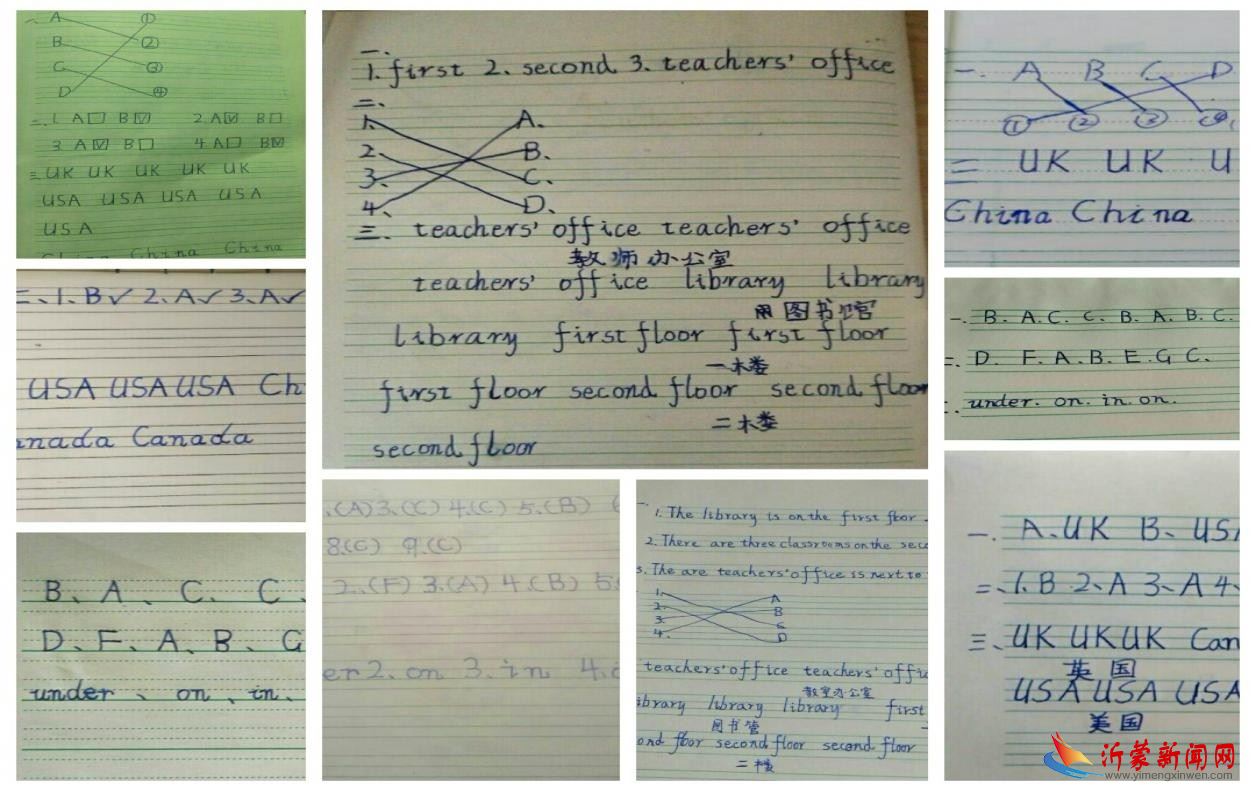 一、 A ①
B ②
C ③
D ④
二、1. A□ B☑ 2. A☑ B□
3. A☑ B□ 4. A□ B☑
三 UK UK UK UK UK
USA USA USA USA
USA
China China China
二、1. B✓ 2. A✓ 3. A✓
USA USA USA Ch
nada Canada
B、A、C、C、
D、F、A、B、G
under、on、in、
一、
1. first 2. second 3. teachers' office
二、
1. A.
2. B.
3. C.
4. D.
三、teachers' office teachers' office
教师办公室
teachers' office library library
图书馆
library first floor first floor
一楼
first floor second floor second floor
二楼
second floor
.(A) 3.(C) 4.(C) 5.(B)
8.(C) 9.(C)
2.(F) 3.(A) 4.(B) 5.
er 2. on 3. in 4.
一、
1. The library is on the first floor.
2. There are three classrooms on the seco
3. The are teachers' office is next to
1. A
2. B
3. C
4. D
teachers' office teachers' offi
教室办公室
ibrary library library first
图书管
ond floor second floor second floor
二楼
一、 A B C D
① ② ③ ④
二 UK UK U
China China
一、B. A. C. C. B. A. B. C.
二、D. F. A. B. E. G C.
under. on. in. on.
一、A、UK B、USA
二、1. B 2、A 3、A 4、
三、UK UK UK Can
英国
USA USA USA
美国
沂蒙新闻网
www.yimengxinwen.com